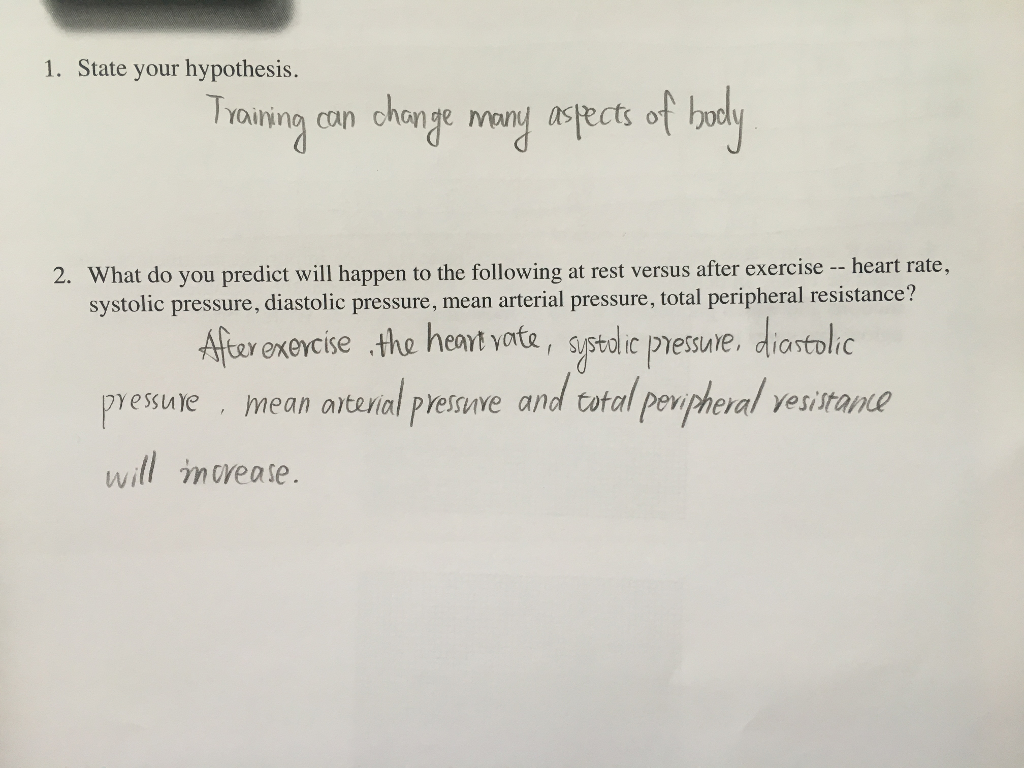 1. State your hypothesis.
Training can change many aspects of body
2. What do you predict will happen to the following at rest versus after exercise -- heart rate,
systolic pressure, diastolic pressure, mean arterial pressure, total peripheral resistance?
After exercise , the heart rate, systolic pressure, diastolic
pressure , mean arterial pressure and total peripheral resistance
will increase.